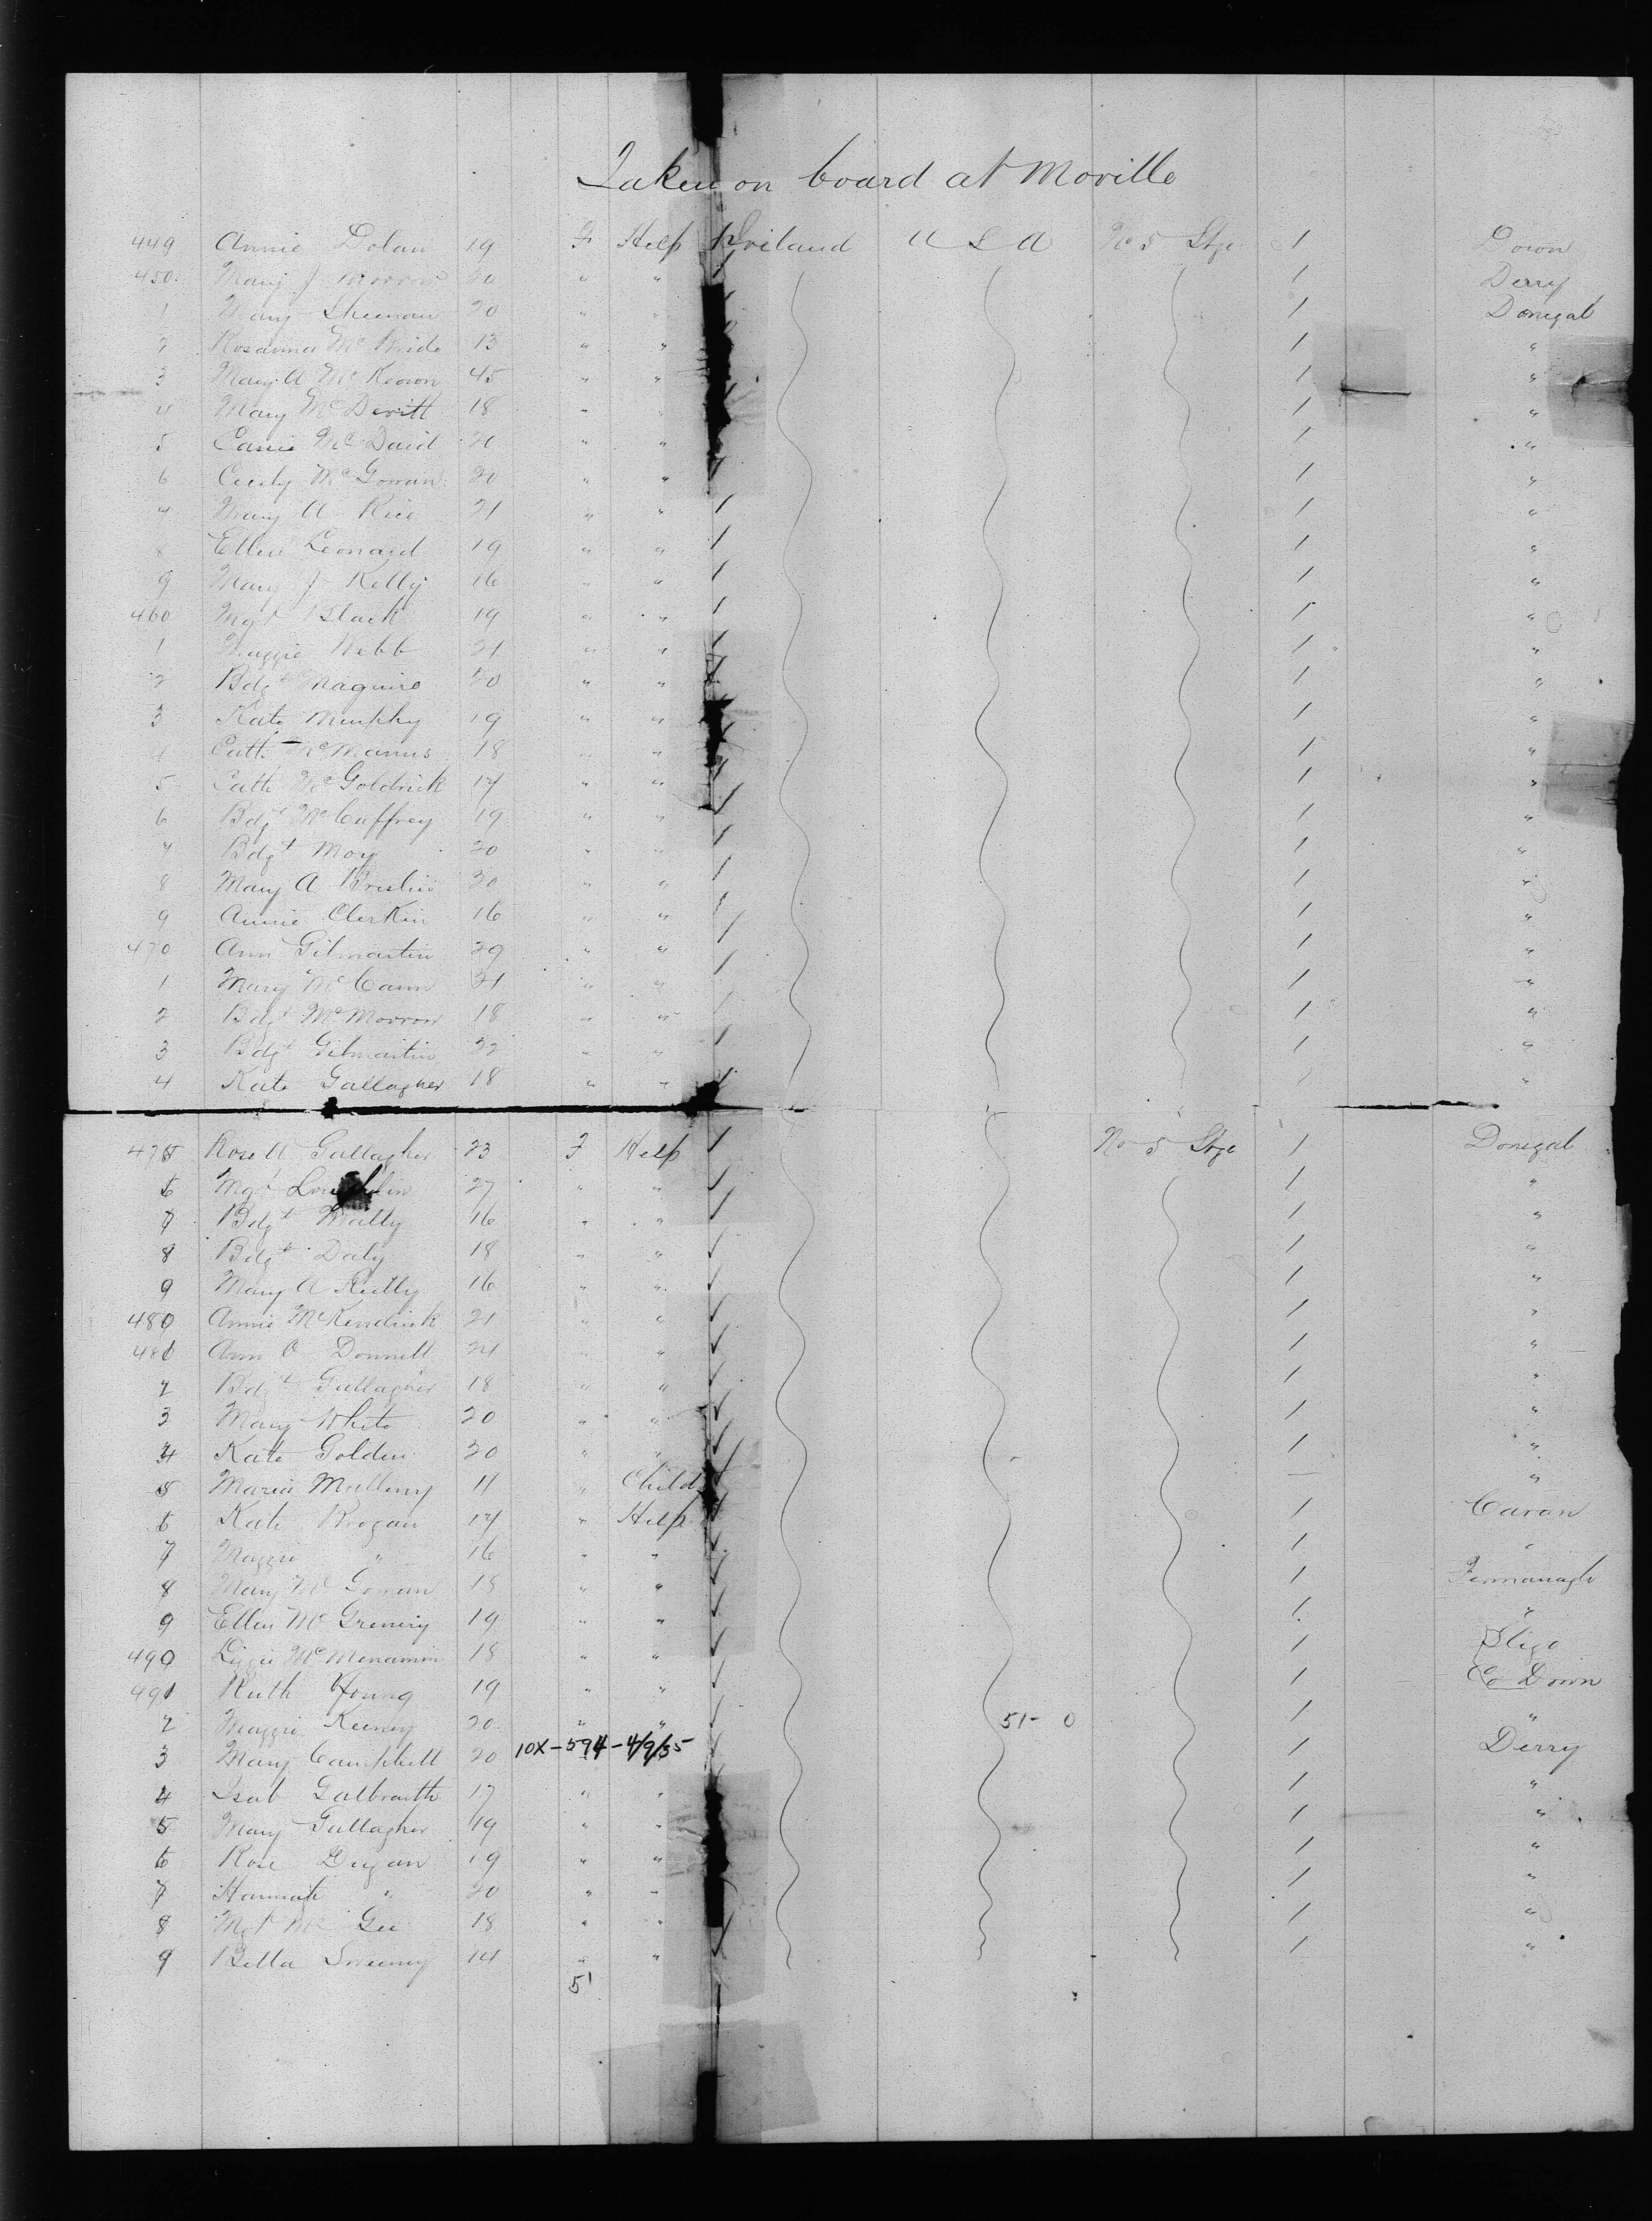 Taken on board at Moville
449 Annie Dolan 19 F Help 1 Ireland U S A No 5 Stge 1 Down
450 Mary J Morrow 20 " " 1 Derry
1 Mary Sheenan 20 " " 1 Donegal
2 Rosanna McBride 13 " " 1 "
3 Mary A McKeown 45 " " 1 "
4 Mary McDevitt 18 " " 1 "
5 Cassie McDaid 20 " " 1 "
6 Cecily McGowan 20 " " 1 "
7 Mary A Rice 21 " " 1 1 "
8 Ellen Leonard 19 " " 1 1 "
9 Mary J Kelly 16 " " 1 1 "
460 Mgt Black 19 " " 1 1 "
1 Maggie Webb 21 " " 1 1 "
2 Bdgt Maguire 20 " " 1 1 "
3 Kate Murphy 19 " " 1 "
4 Cath McManus 18 " " 1 "
5 Cath McGoldrick 17 " " 1 "
6 Bdgt McCaffrey 19 " " 1 1 "
7 Bdgt Moy 20 " " 1 1 "
8 Mary A Breslin 20 " " 1 1 "
9 Annie Clerkin 16 " " 1 1 "
470 Ann Gilmartin 29 " " 1 1 "
1 Mary McCann 21 " " 1 1 "
2 Bdgt McMorrow 18 " " 1 1 "
3 Bdgt Gilmartin 22 " " 1 1 "
4 Kate Gallagher 18 " " 1 1 "
475 Rose A Gallagher 23 F Help 1 No 5 Stge 1 Donegal
6 Mgt 27 " " 1 1 "
7 Bdgt 16 " " 1 1 "
8 Bdgt Daly 18 " " ✓ 1 "
9 Mary A Reilly 16 " " ✓ 1 "
480 Annie McKendrick 21 " " ✓ 1 "
481 Ann O Donnell 24 " " ✓ 1 "
2 Bdgt Gallagher 18 " " ✓ 1 "
3 Mary White 20 " " ✓ 1 "
4 Kate Golden 20 " " ✓ 1 "
5 Maria 11 " Child ✓ — "
6 Kate Brogan 17 " Help ✓ 1 Cavan
7 Maggie " 16 " " ✓ 1 "
8 Mary McGowan 18 " " ✓ 1 Fermanagh
9 Ellen McGreniry 19 " " ✓ 1 "
490 Lizzie McMenamin 18 " " ✓ 1 Sligo
491 Ruth Young 19 " " ✓ 1 Co Down
2 Maggie Keeney 20 " " ✓ 51-0 1 "
3 Mary Campbell 20 10X-594-4/9/35 ✓ 1 Derry
4 Isab Galbraith 17 " " 1 "
5 Mary Gallagher 19 " " 1 "
6 Rose Degan 19 " " 1 "
7 Hannah " 20 " " 1 "
8 Mgt Mc Gee 18 " " ✓ 1 "
9 Bella Sweeny 14 " " ✓ 1 "
51